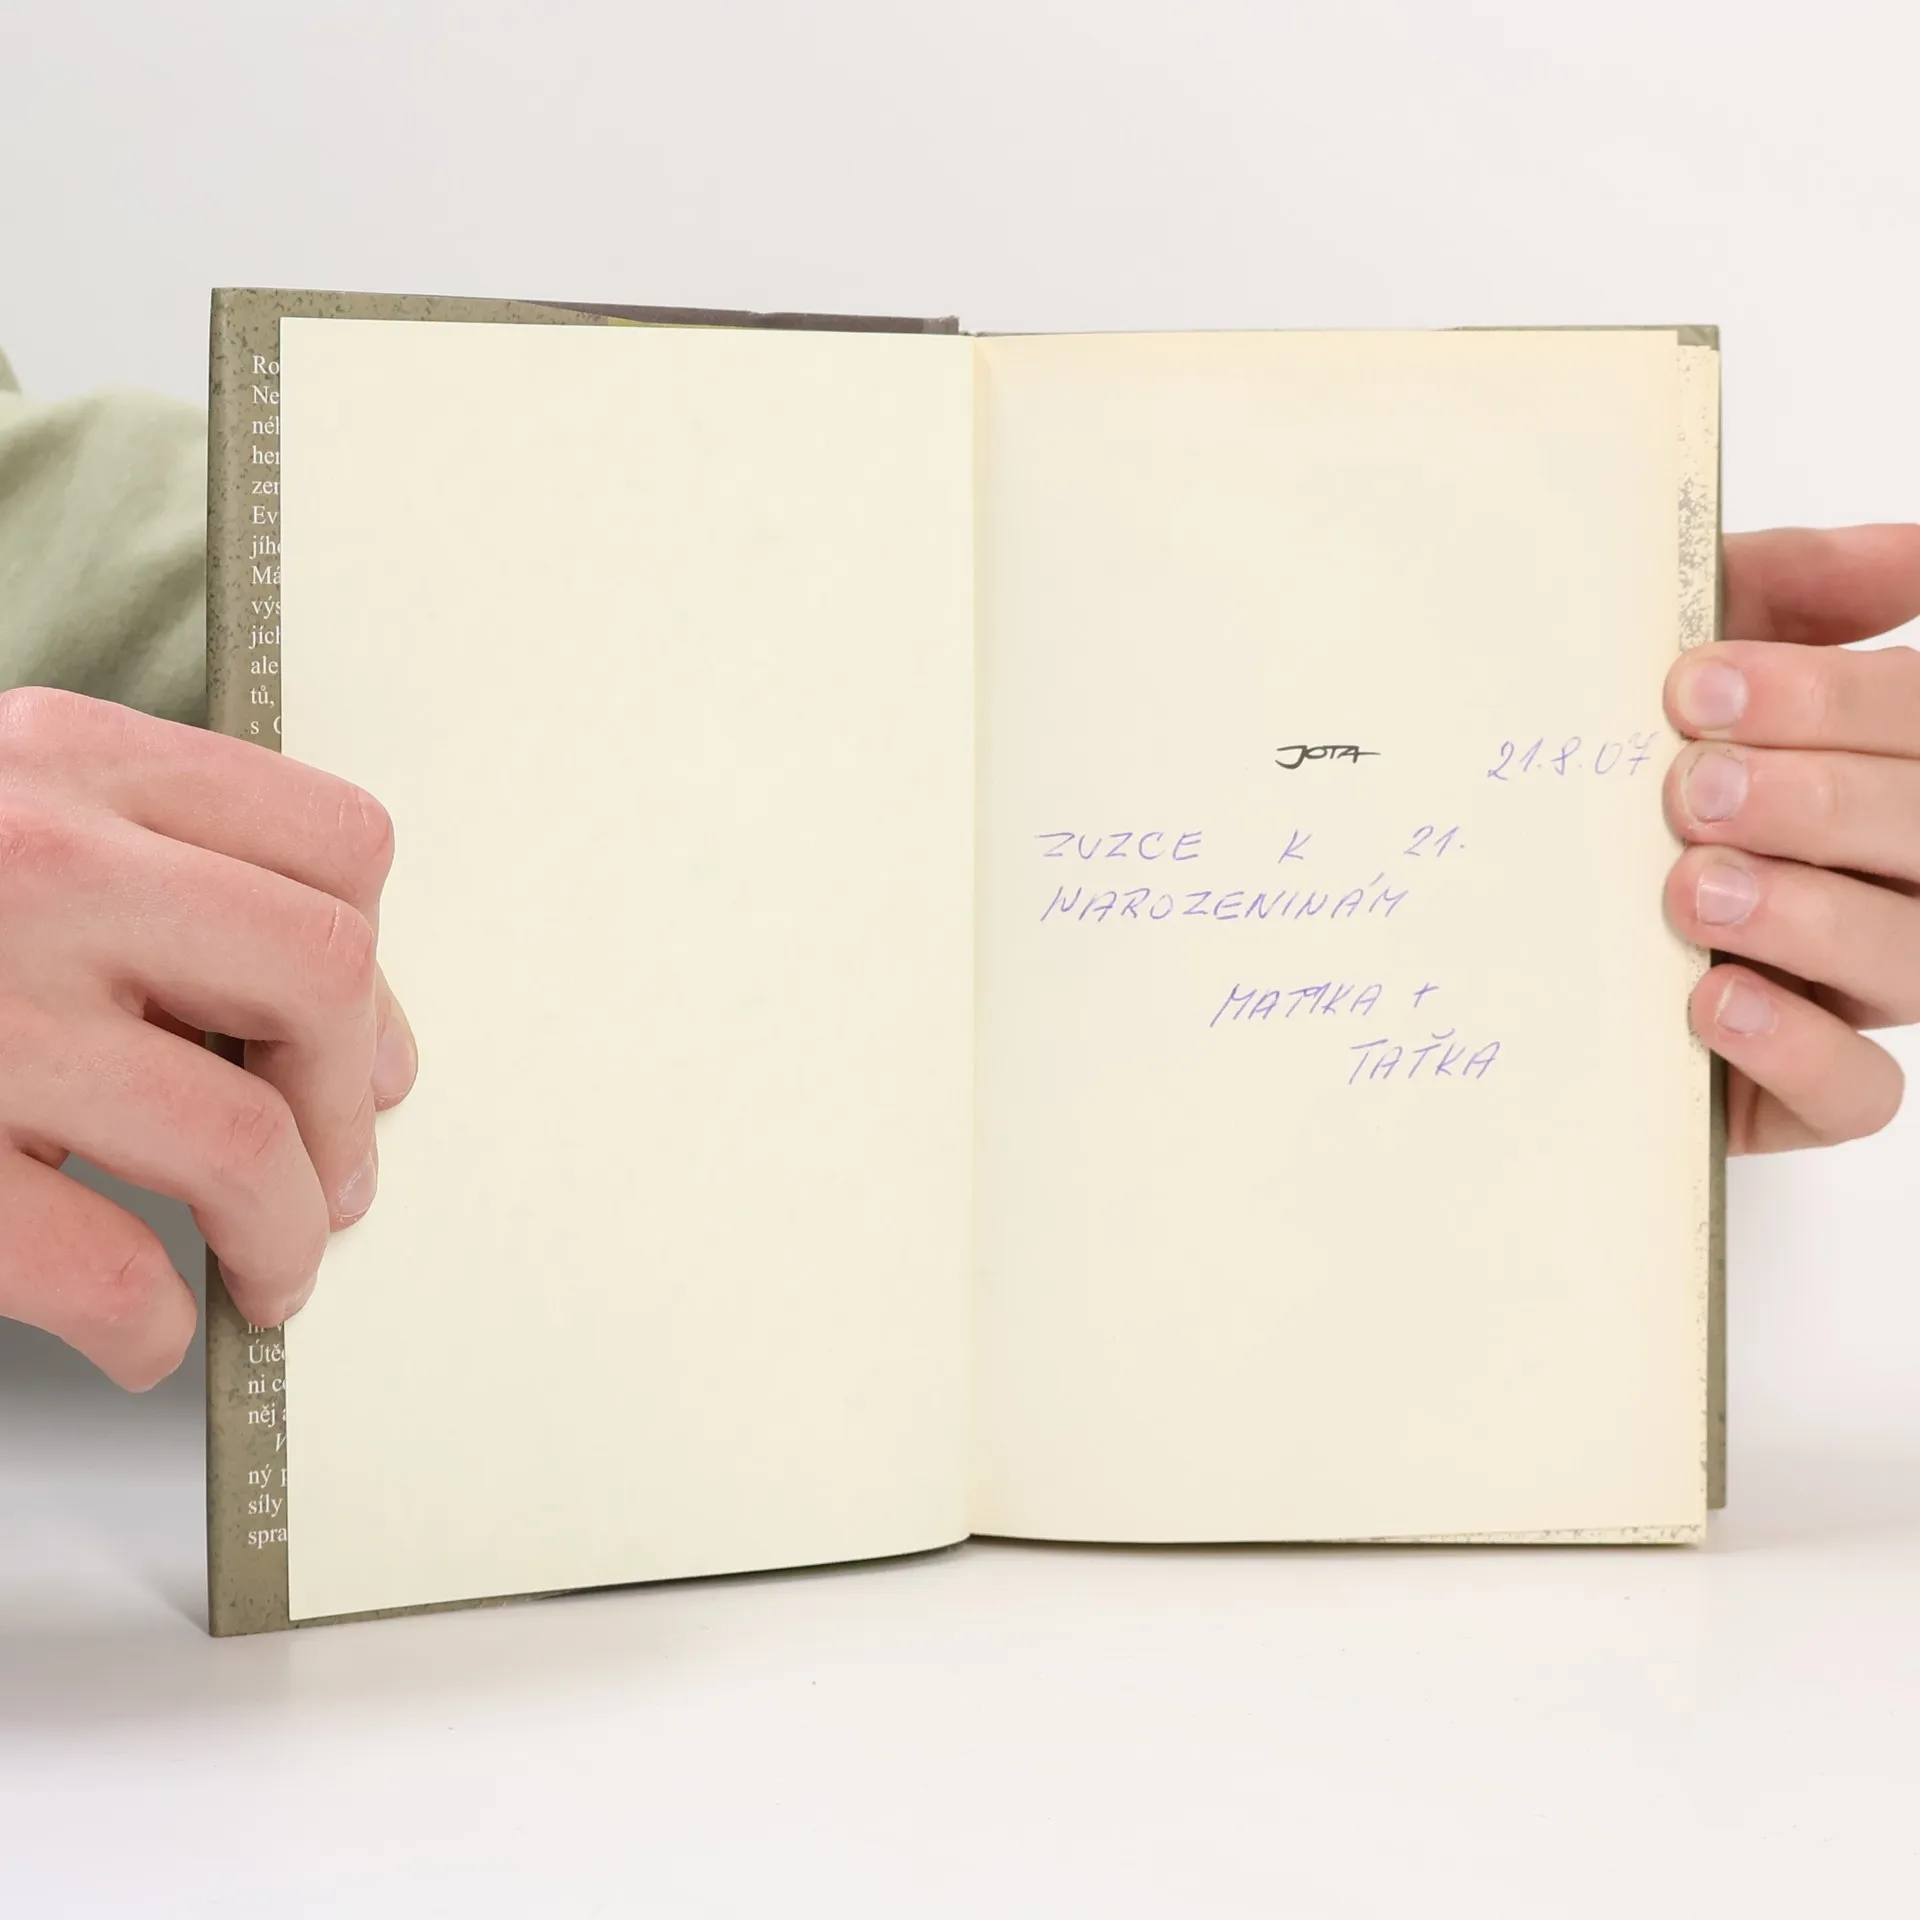 Ro
Ne
néh
her
zen
Ev
jího
Má
výs
jích
ale
tů,
s
Útě
ni
něj
ný
síly
spra
JOTA
21.8.07
ZUZCE K 21.
NAROZENINÁM
MAMKA +
TAŤKA